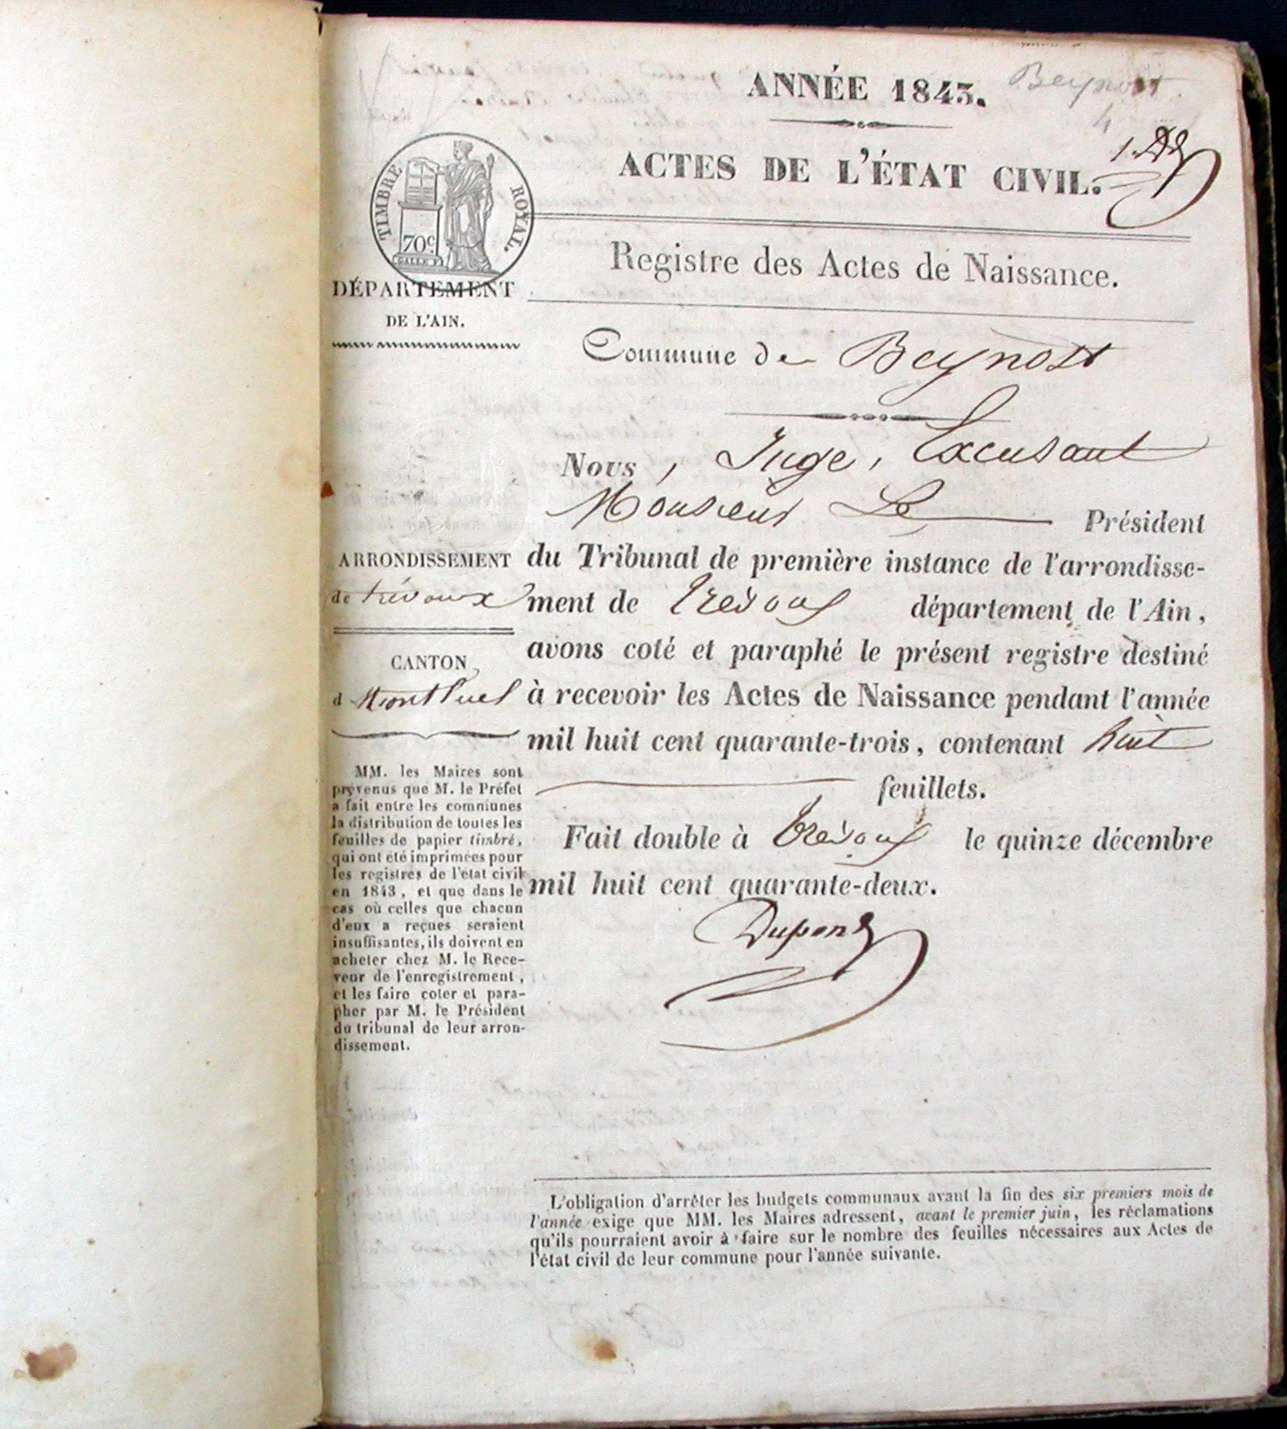 ANNÉE 1843.
Beynost
4
1.
ACTES DE L'ÉTAT CIVIL.
TIMBRE ROYAL.
70c
Registre des Actes de Naissance.
DÉPARTEMENT
DE L'AIN.
Commune de Beynost
Nous, Juge, Excusant
Monsieur Le Président
ARRONDISSEMENT
de trévoux
CANTON
d Montluel
du Tribunal de première instance de l'arrondisse-
ment de Trévoux département de l'Ain,
avons coté et paraphé le présent registre destiné
à recevoir les Actes de Naissance pendant l'année
mil huit cent quarante-trois, contenant huit
feuillets.
Fait double à Trévoux le quinze décembre
mil huit cent quarante-deux.
Dupond
MM. les Maires sont
prévenus que M. le Préfet
a fait entre les communes
la distribution de toutes les
feuilles de papier timbré,
qui ont été imprimées pour
les registres de l'état civil
en 1843, et que dans le
cas où celles que chacun
d'eux a reçues seraient
insuffisantes, ils doivent en
acheter chez M. le Rece-
veur de l'enregistrement,
et les faire coter et para-
pher par M. le Président
du tribunal de leur arron-
dissement.
L'obligation d'arrêter les budgets communaux avant la fin des six premiers mois de
l'année exige que MM. les Maires adressent, avant le premier juin, les réclamations
qu'ils pourraient avoir à faire sur le nombre des feuilles nécessaires aux Actes de
l'état civil de leur commune pour l'année suivante.